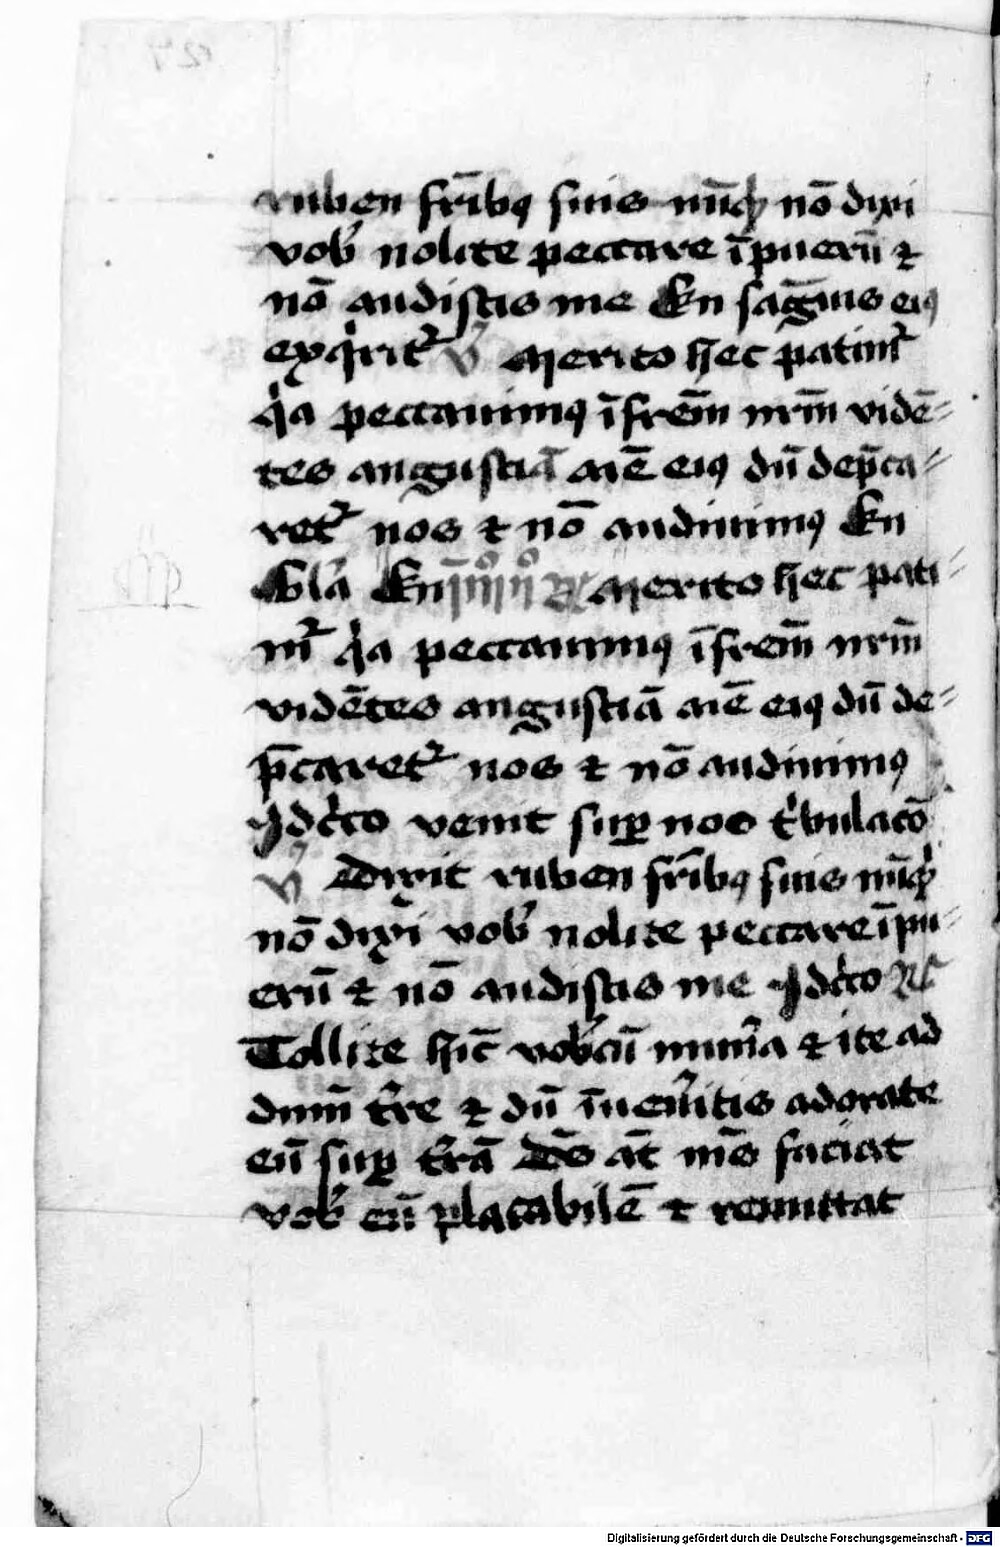 ruben fr̄ibꝯ suis nūqͥd nō dixi
vob̓ nolite peccare ī puerū ⁊
nō audistis me En sāguis eiꝯ
exqͥrit᷑ V̓ Merito hec patim᷑
qͥa peccauimꝯ ī frēm nr̄m vidē-
tes angustiā aīe eiꝯ dū dep̄ca-
ret᷑ nos ⁊ nō audiuimꝯ En
Gl̓a En Merito hec pati-
m᷑ qͥa peccauimꝯ ī frēm nr̄m
vidētes angustiā aīe eiꝯ dū de-
p̄caret᷑ nos ⁊ nō audiuimꝯ
Idcͥco venit suꝑ nos tͥbulacō
V̓ Dixit ruben fr̄ibꝯ suis nūqͥd
nō dixi vob̓ nolite peccare ī pu-
erū ⁊ nō audistis me Idcͥco R̓
Tollite hīc vob̓cū mun̓a ⁊ ite ad
dnm̄ t̓re ⁊ dū īuen̓itis adorate
eū suꝑ t̓rā Dē⁹ āt mē⁹ faciat
vob̓ eū placabilē ⁊ remittat
Digitalisierung gefördert durch die Deutsche Forschungsgemeinschaft - DFG